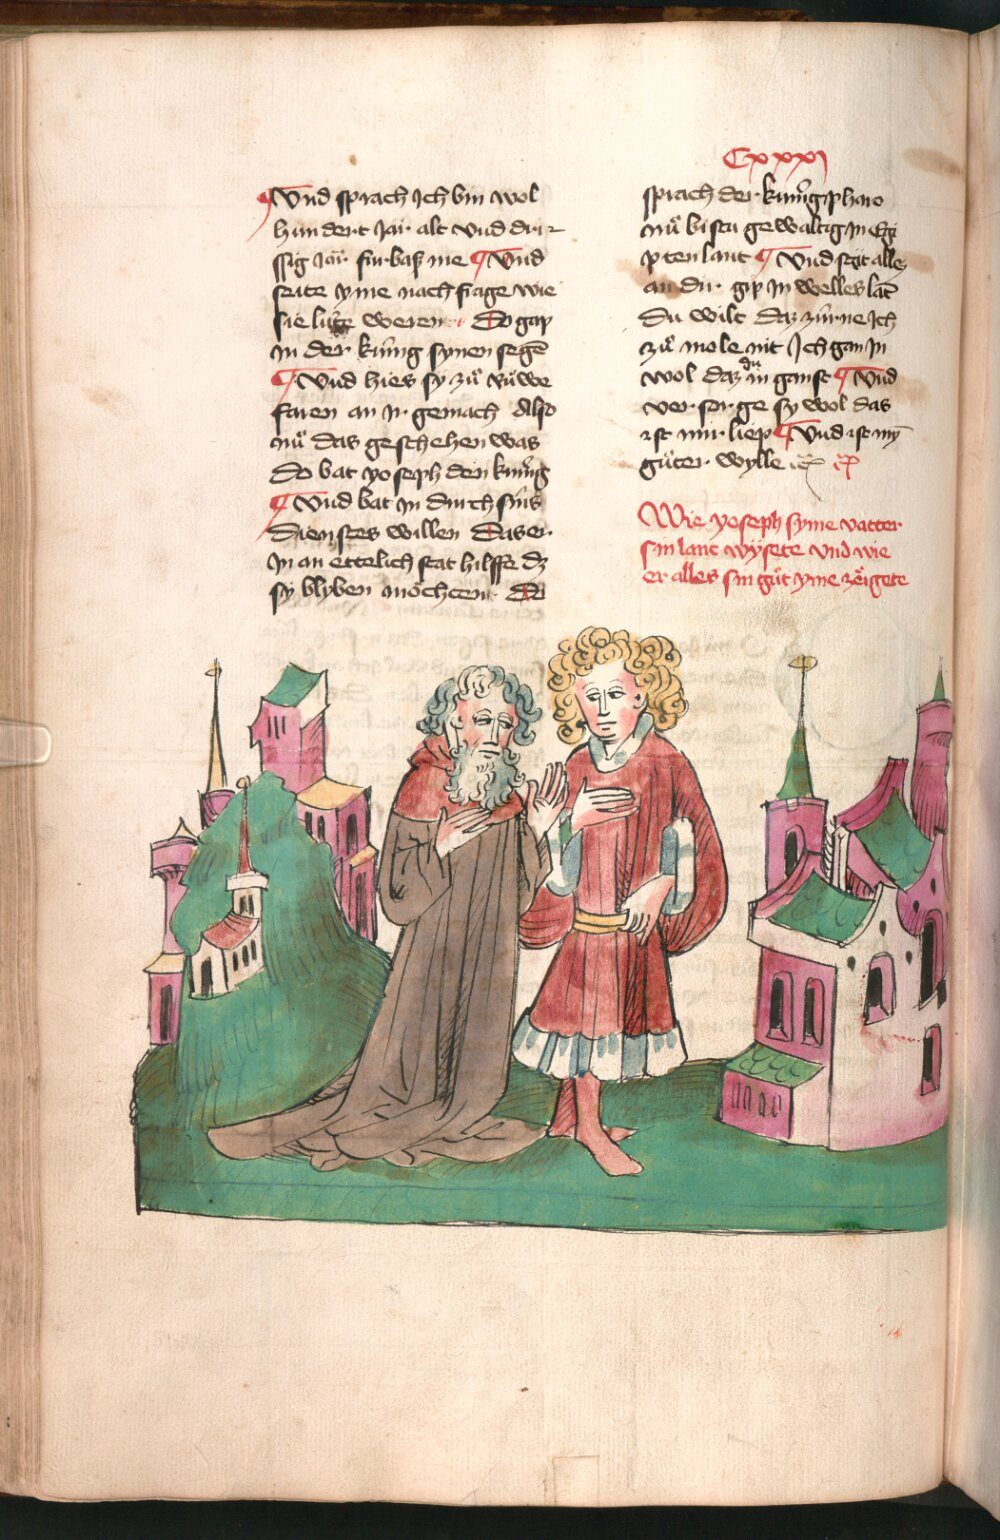 Cxxxj
Vnd sprach Ich bin wol
hundert Jar alt vnd dri
ssig Jar furbaß me Vnd
seite yme nach frage wie
sie lütte weren Do gap
In der kunig synen segē
Vnd hies sy zů růwe
faren an Ir gemach Also
nů das geschehen was
Do bat yoseph den kunig
Vnd bat In durch sins
dienstes willen Das er
In an ettelich stat hilffe dz
sy blyben möchten Do
sprach der kunig phaio
nů bistu gewaltig In Egi
pten lant Vnd stet alles
an dir gip In welles lāt
Du wilt daz zürne Ich
zů mole nit Ich gan In
wol daz du In ganst Vnd
versorge sy wol das
ist mir liep Vnd ist mȳ
gůter wylle
Wie yoseph syme vatter
sin lant wÿsete vnd wie
er alles sin gůt yme zöigete